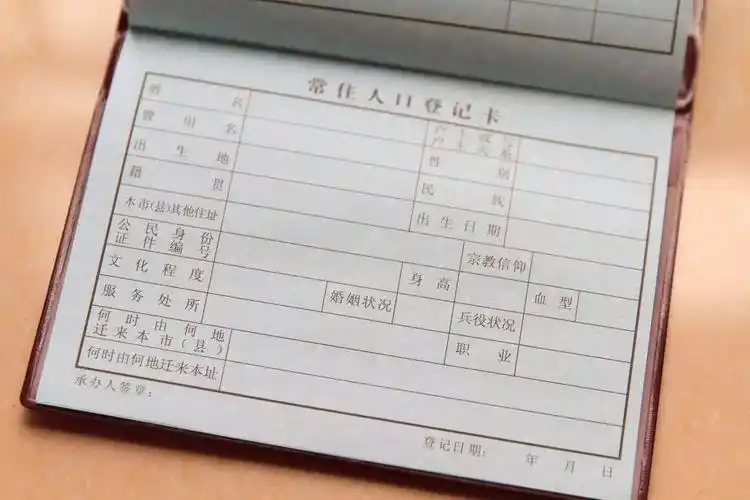 常住人口登记卡
姓名 户主或与户主关系
曾用名 性别
出生地 民族
籍贯 出生日期
本市(县)其他住址 宗教信仰
公民身份证件编号 身高 血型
文化程度 婚姻状况 兵役状况
服务处所 职业
何时由何地迁来本市(县)
何时由何地迁来本址
承办人签章： 登记日期： 年 月 日